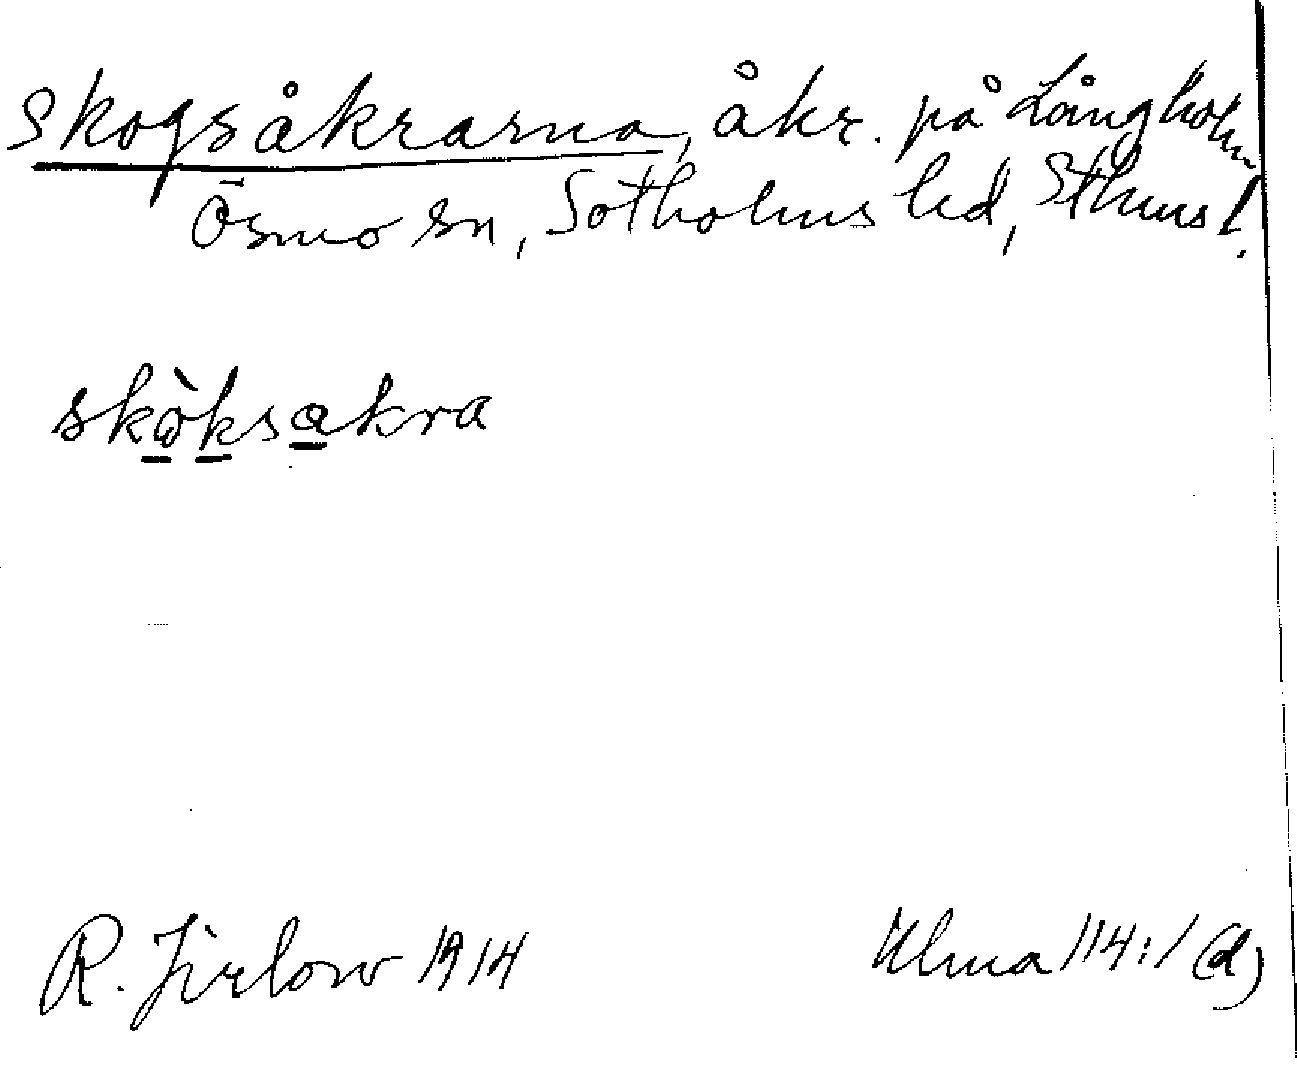 Skogsåkrarna, åkr. på Långholm
Ösmo sn, Sotholms hd, Sthms l.
skòksakra
R. Jirlow 1914
Ulma 114:1 (d)